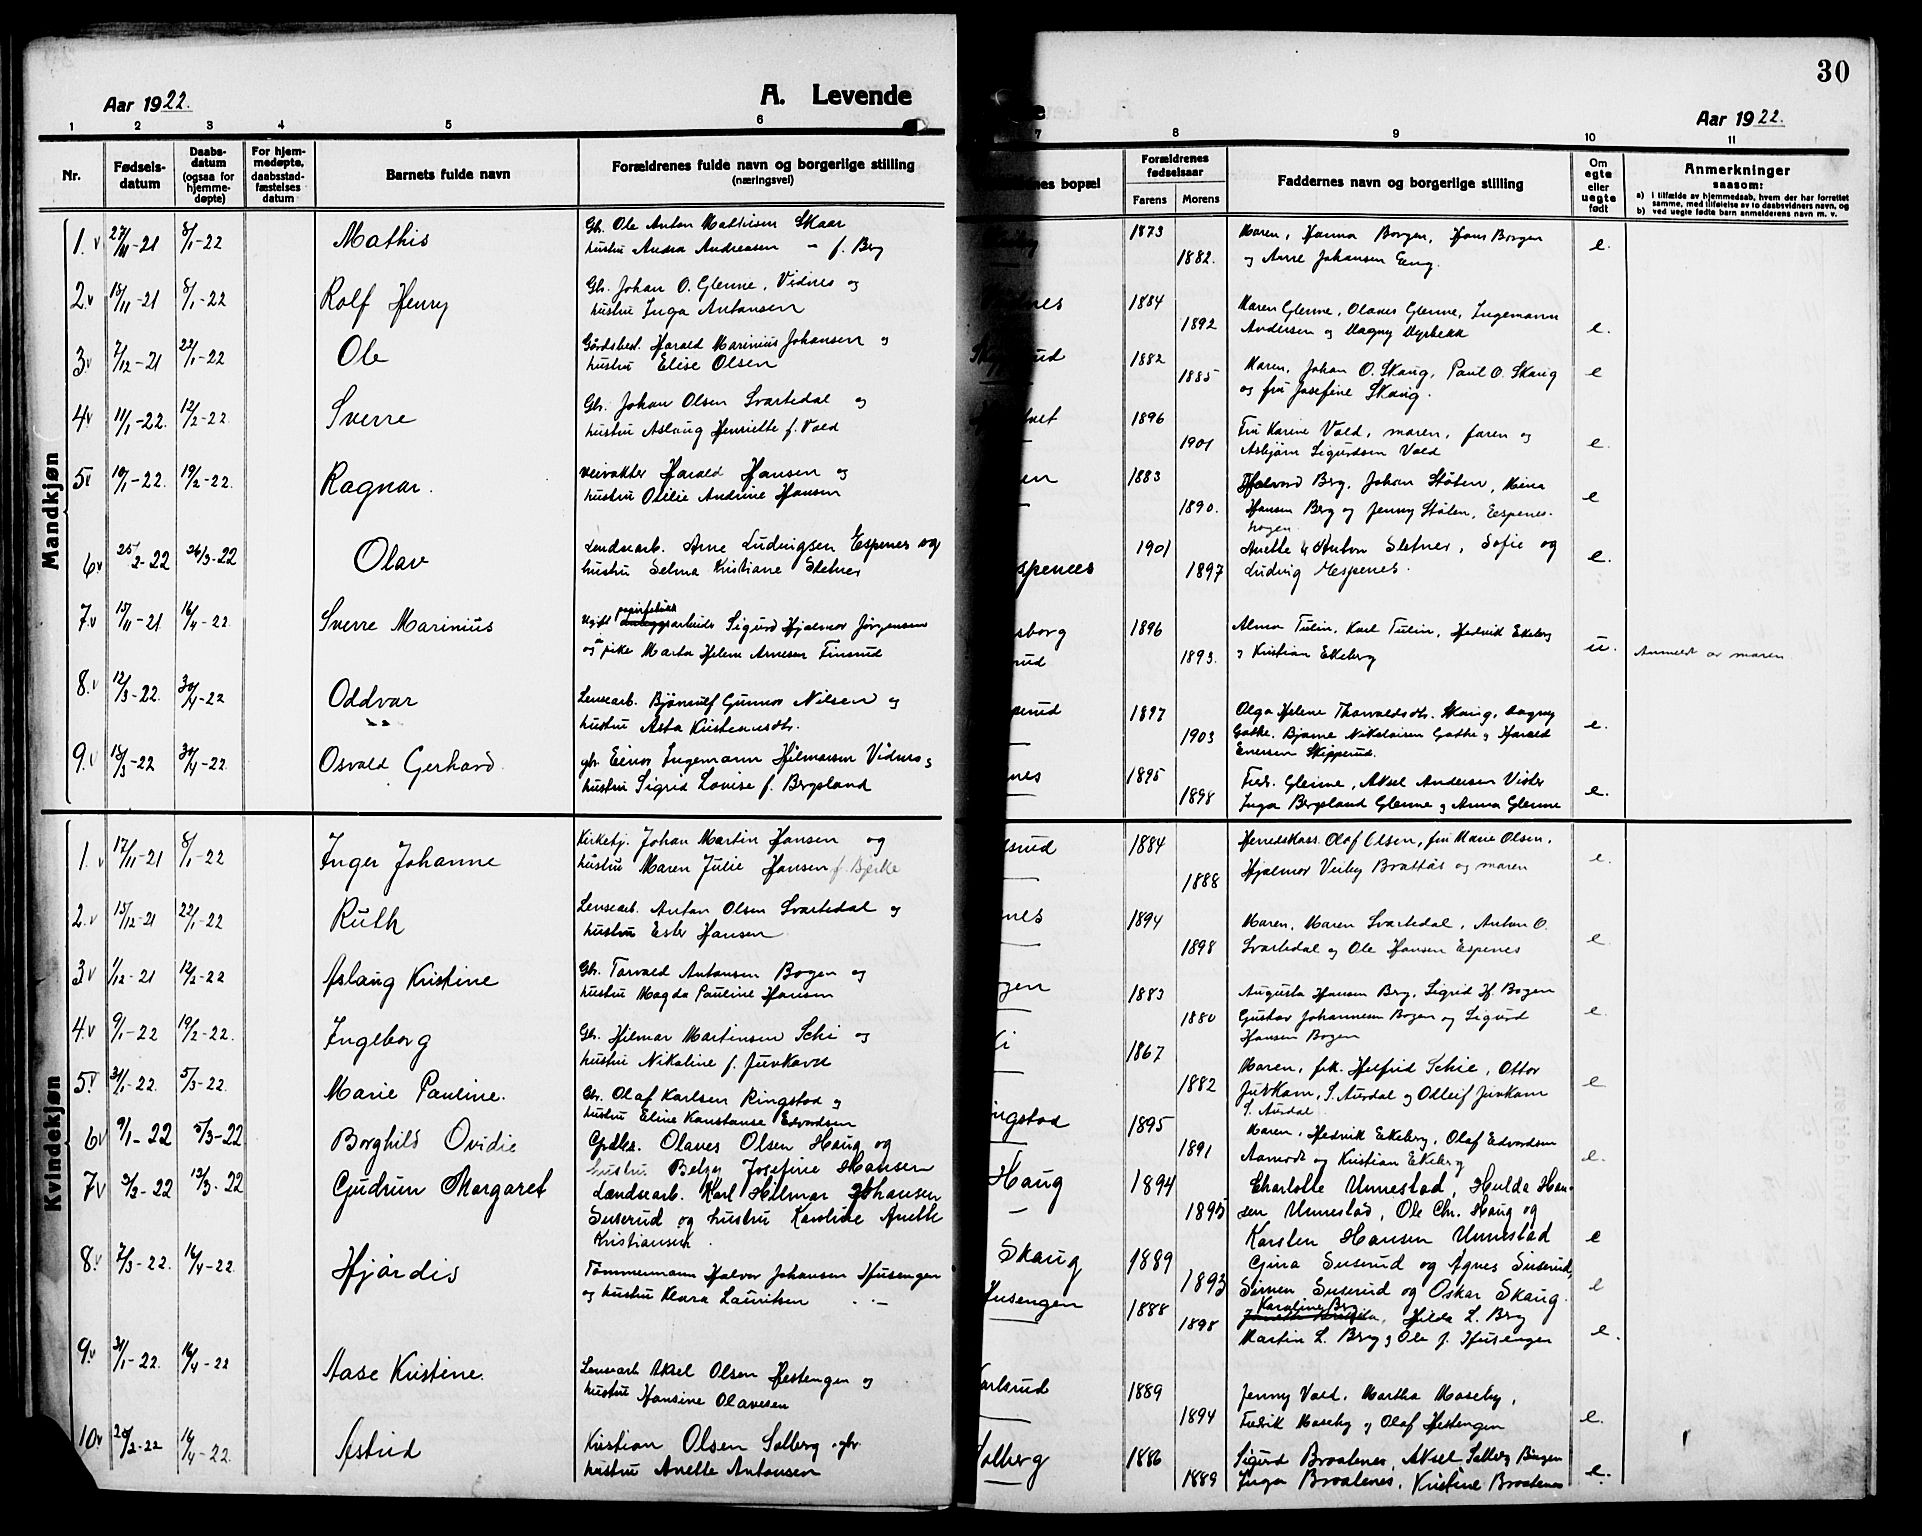 30
Aar 1922.
A. Levende
Aar 1922.
1 2 3 4 5 6 7 8 9 10 11
Nr.
Fødsels-
datum
Daabs-
datum
(ogsaa for
hjemme-
døpte)
For hjem-
medøpte,
daabsstad-
fæstelses
datum
Barnets fulde navn
Forældrenes fulde navn og borgerlige stilling
(næringsvei)
nes bopæl
Forældrenes
fødselsaar
Farens Morens
Faddernes navn og borgerlige stilling
Om
egte
eller
uegte
født
Anmerkninger
saasom:
a) i tilfælde av hjemmedaab, hvem der har forrettet
samme, med tilføielse av to daabsvidners navn, og
b) ved uegte fødte barn anmelderens navn m. v.
Mandkjøn
1. v 27/11-21 8/1-22 Mathis Gb. Ole Anton Mathisen Skaar
hustru Andra Andreasen - f. Berg
1873 1882. Maren, Hanna Borgen, Hans Borgen
og Arne Johansen Eng. e.
2. v 18/11-21 8/1-22 Rolf Henry Gb. Johan O. Glenne, Vidnes og
hustru Inga Antonsen
1884 1892 Maren Glenne, Olaves Glenne, Ingemann
Andersen og Dagny Myrbekk e.
3. v 7/12-21 22/1-22 Ole Gårdsbest. Harald Marinius Johansen og
hustru Elise Olsen
1882 1885 Maren, Johan O. Skaug, Paul O. Skaug
og fru Josefine Skaug. e
4. v 11/1-22. 12/2-22. Sverre Gb. Johan Olsen Svartedal og
hustru Aslaug Henriette f. Vold
1896 1901 Fru Karine Vold, maren, faren og
Asbjørn Sigurdsen Vold e.
5. v 10/1-22. 19/2-22. Ragnar. Veivokter Harald Hansen og
hustru Otilie Andrine Hansen
en 1883 1890. Halvord Berg, Johan Støten, Mina
Hansen Berg og Jenny Støten, Espenes-
hagen e
6. v 25/2-22 26/3-22 Olav Lendsearb. Arne Ludvigsen Espenes og
hustru Selma Kristiane Sletner
spenees 1901 1897 Anette & Anton Sletner, Sofie og
Ludvig Espenes. e.
7. v 15/11-21 16/4-22. Sverre Marinius papirfabrik
Ugift arbeider Sigurd Hjalmar Jørgensen
og pike Marta Helene Arnesen Finsrud
sborg rud 1896 1893. Alma Tulin, Karl Tulin, Hedvik Ekeberg
og Kristian Ekeberg u. Anmeldt av maren
8. v 12/3-22. 30/4-22 Oddvar Lensearb. Bjønnulf Gunnar Nilsen og
hustru Asta Kristiansdtr.
perud 1897 1903 Olga Helene Thorvaldsdtr. Skaug, Dagny
Gatke. Bjarne Nikolaisen Gatke og Harald
Enersen Skipperud. e.
9. v 18/3-22 30/4-22. Osvald Gerhard gbr Einar Ingemann Hilmarsen Vidnes og
hustru Sigrid Lovise f. Bergsland
nes 1895 1898 Fredr. Glenne, Aksel Andersen Vister
Inga Bergsland Glenne og Anna Glenne e.
Kvindekjøn
1. v 17/11-21 8/1-22 Inger Johanne Kirketj. Johan Martin Hansen og
hustru Maren Julie Hansen f. Bjerke
lsrud 1884 1888 Herredskass. Olaf Olsen, fru Marie Olsen,
Hjalmar Visby Brattås og maren e.
2. v 15/12-21 22/1-22 Ruth Lensearb. Anton Olsen Svartedal og
hustru Ester Hansen
nes 1894 1898 Maren, Maren Svartedal, Anton O.
Svartedal og Ole Hansen Espenes e.
3. v 1/12-21 12/2-22 Aslaug Kristine Gb. Torvald Antonsen Bogen og
hustru Magda Pauline Hansen
gen 1883 1880 Augusta Hansen Berg, Sigrid H. Bogen
Gustav Johannesen Bogen og Sigurd
Hansen Bogen e.
4. v 9/1-22 19/2-22. Ingeborg Gb. Hilmar Martinsen Schi og
hustru Nikoline f. Juvkam
i 1867 1882 Maren, frk. Helfrid Schie, Ottar
Juvkam, S. Aurdal og Odleif Juvkam
S. Aurdal e
5. v 31/1-22. 5/3-22. Marie Pauline. Gb. Olaf Karlsen Ringstad og
hustru Eline Konstanse Edvardsen
ngstad 1895 1891 Maren, Hedvik Ekeberg, Olaf Edvardsen
Aamodt og Kristian Ekeberg e.
6. v 9/1-22 5/3-22 Borghild Ovidie Olaves Olsen Haug og
hustru Betzy Josefine Hansen
Haug 1894 1895 Charlotte Unnestad, Hulda Han-
sen Unnestad, Ole Chr. Haug og
Karsten Hansen Unnestad e
7. v 3/2-22 12/3-22 Gudrun Margaret Landsearb. Karl Hilmar Johansen
Suserud og hustru Karoline Anette
Kristiansen.
Skaug 1889 1893 Gina Suserud og Agnes Suserud,
Simen Suserud og Oskar Skaug. e
8. v 7/3-22. 16/4-22. Hjørdis Tømmermann Halvor Johansen Husengen
og hustru Klara Lauritsen
Husengen 1888 1898 Karoline Berg
Hilda L. Berg
Martin L. Berg og Ole J. Husengen e.
9. v 31/1-22. 16/4-22 Aase Kristine. Lensearb Aksel Olsen Hestengen og
hustru Hansine Olavesen
arlsrud 1889 1894 Jenny Vold, Martha Moseby,
Fredrik Moseby og Olaf Hestengen e.
10. v 20/2-22 16/4-22. Astrid Kristian Olsen Solberg, gbr
hustru Anette Antonsen
olberg 1886 1889 Sigurd Braatenes, Aksel Solberg Bingen
Inga Braatenes, Kristine Braatenes e.